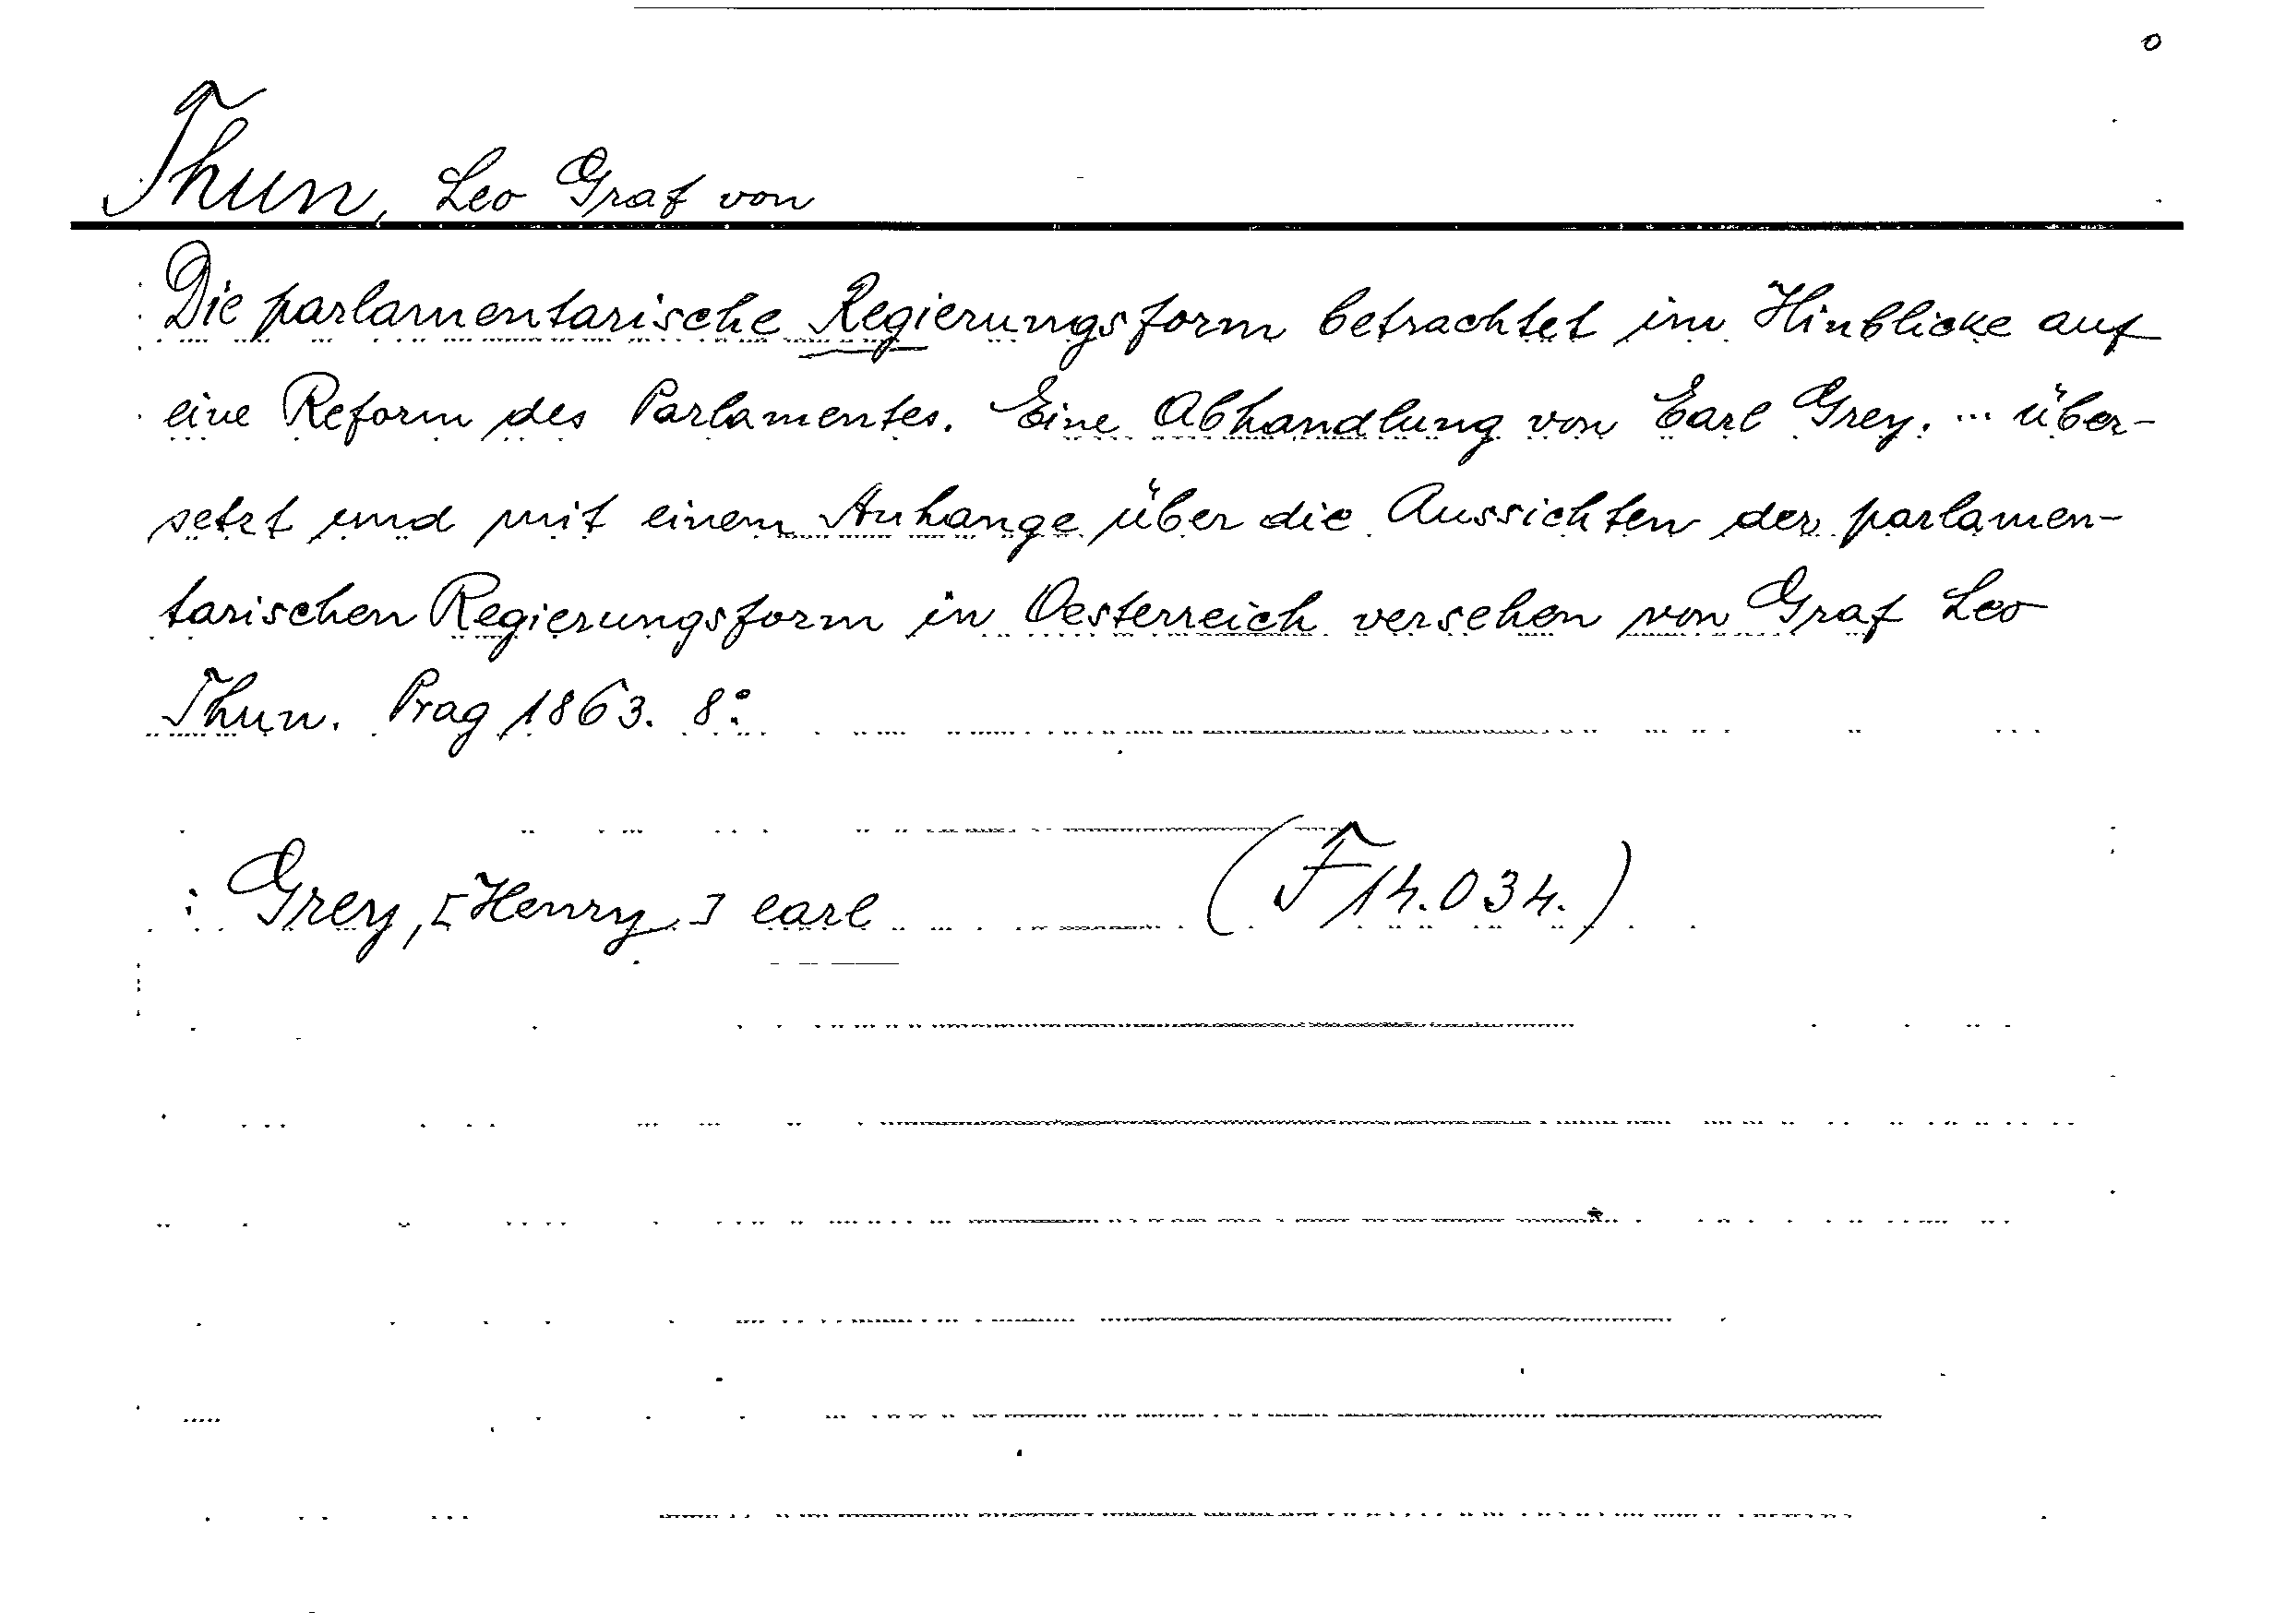 Thun, Leo Graf von
Die parlamentarische Regierungsform betrachtet im Hinblicke auf
eine Reform des Parlamentes. Eine Abhandlung von Earl Grey. ... über-
setzt und mit einem Anhange über die Aussichten der parlamen-
tarischen Regierungsform in Oesterreich versehen von Graf Leo
Thun. Prag 1863. 8°.
Grey, [Henry] earl (F 14.034.)